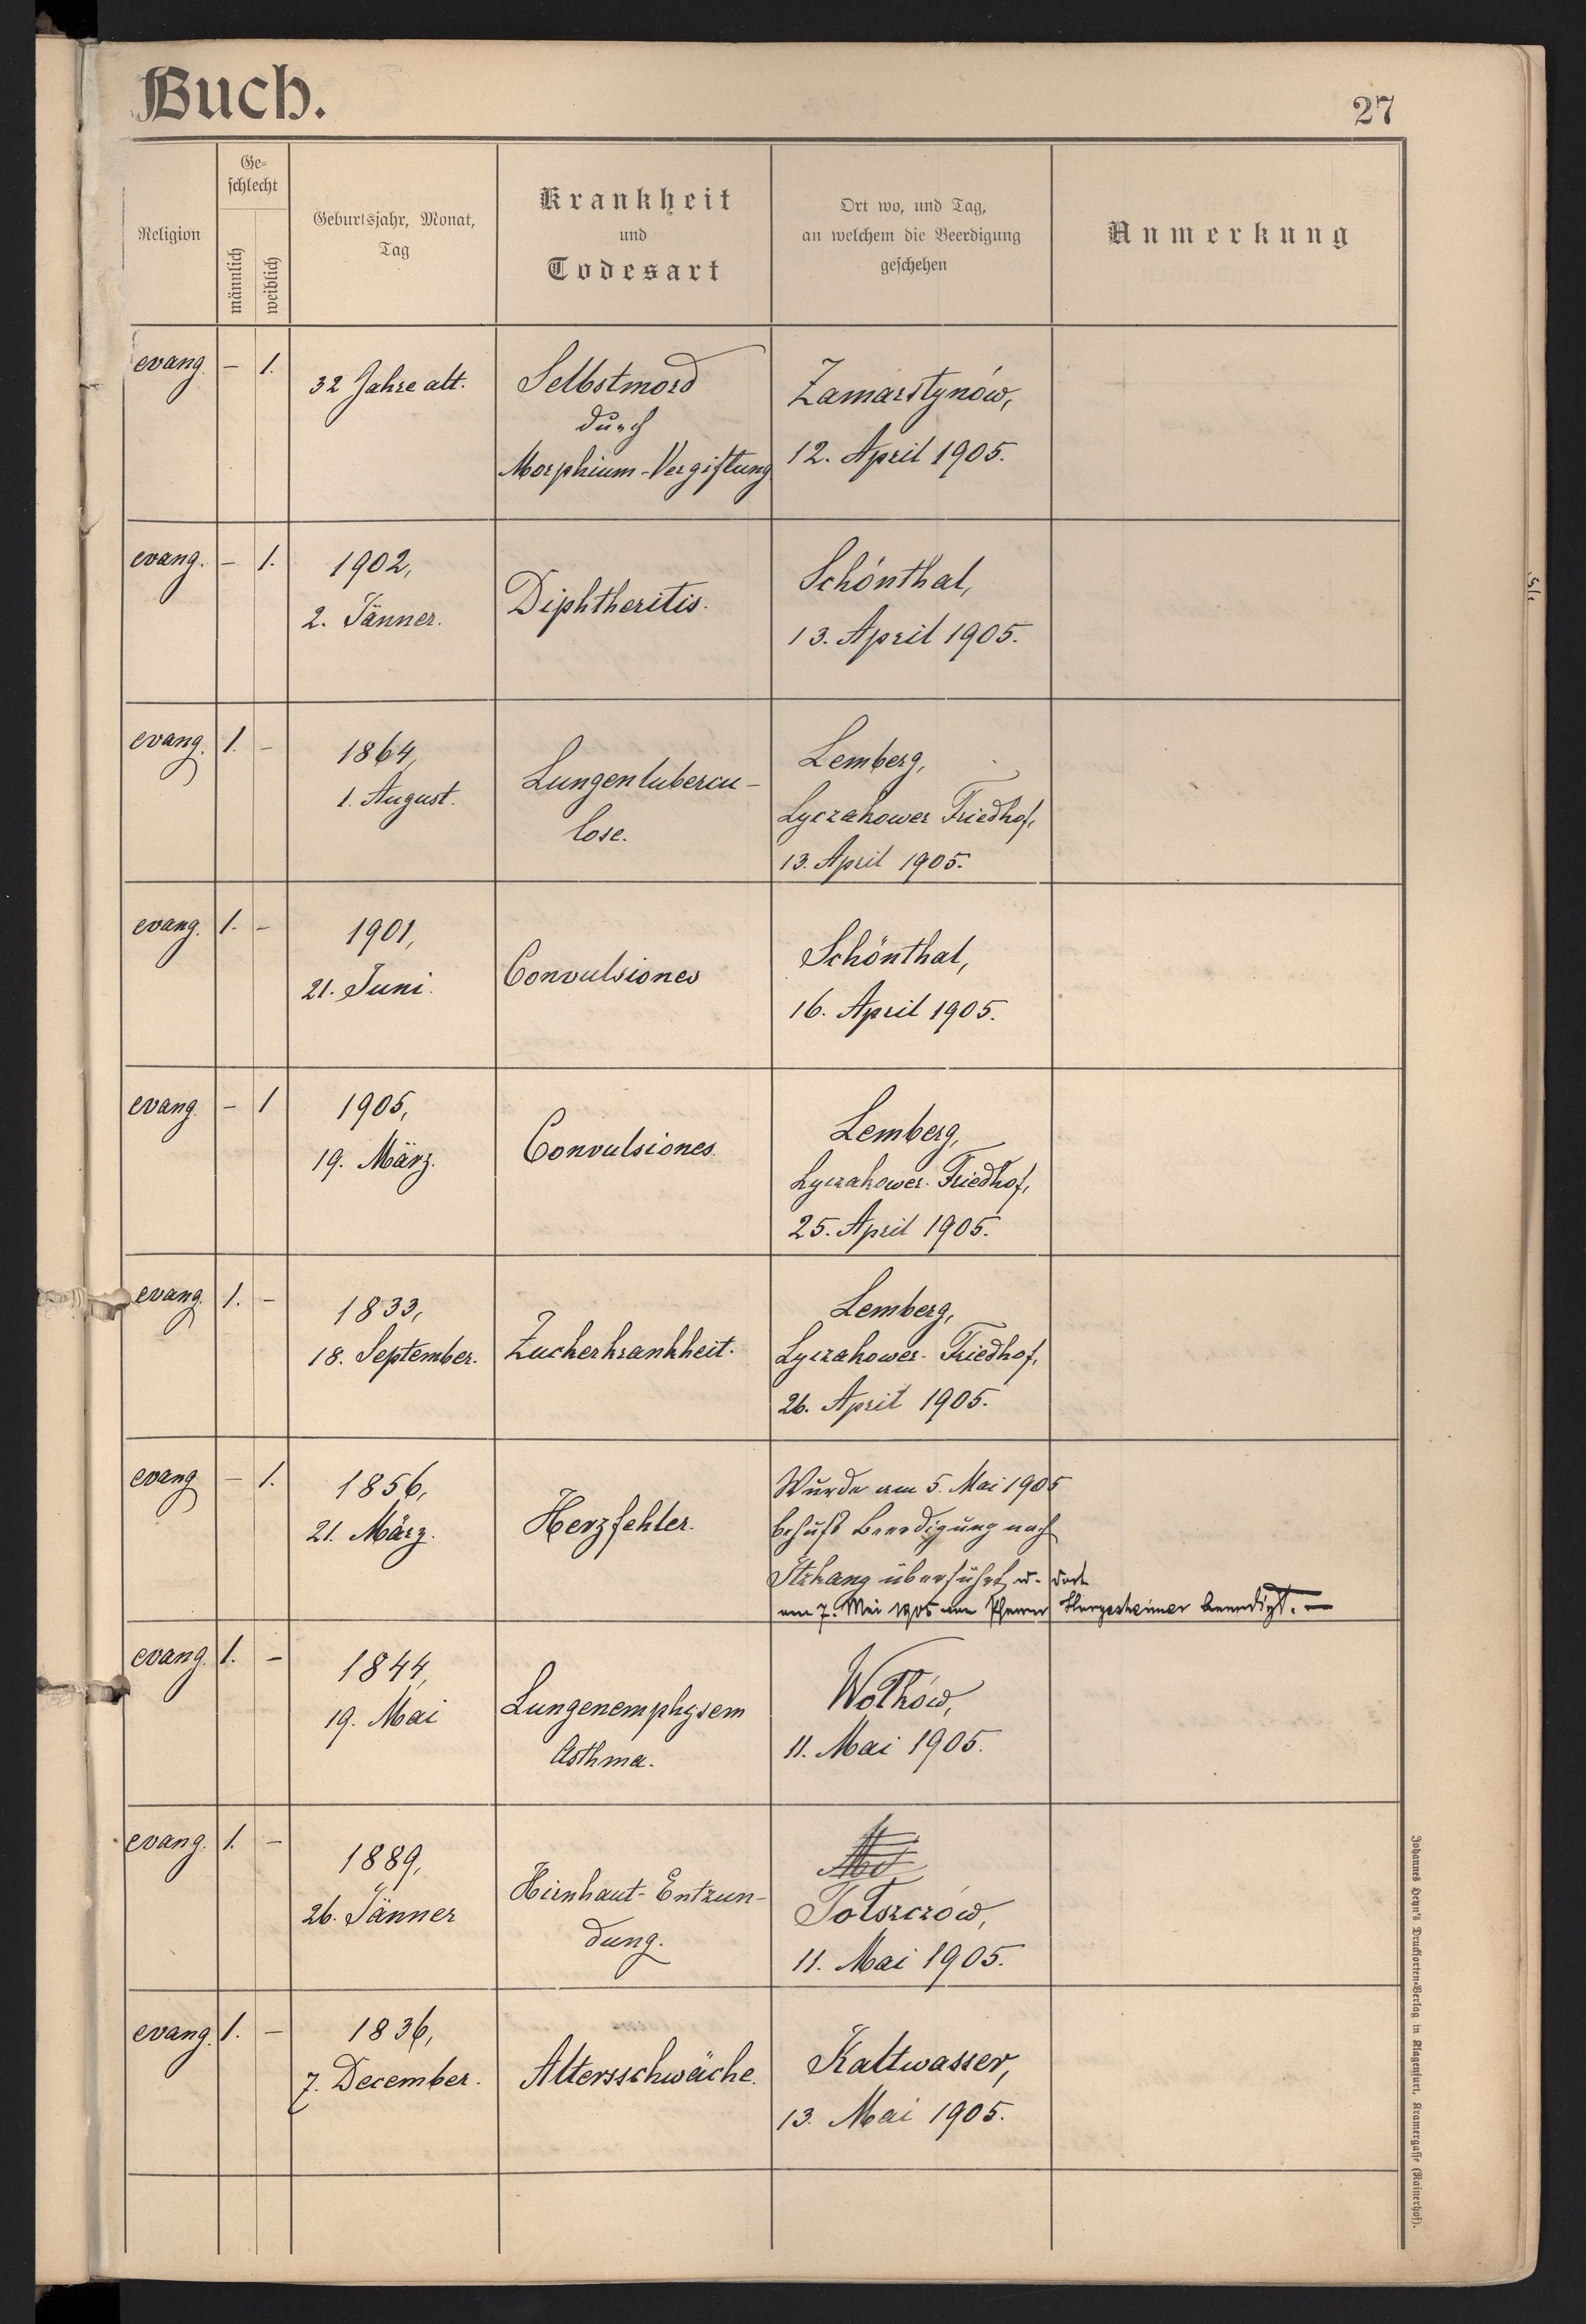 Buch.
27
Religion
Ge-
schlecht
männlich
weiblich
Geburtsjahr, Monat,
Tag
Krankheit
und
Todesart
Ort wo, und Tag,
an welchem die Beerdigung
geschehen
Anmerkung
evang. – 1.
32 Jahre alt.
Selbstmord
durch
Morphium-Vergiftung
Zamarstynów,
12. April 1905.
evang. – 1.
1902,
2. Jänner.
Diphtheritis.
Schönthal,
13. April 1905.
evang. 1. –
1864,
1. August.
Lungentubercu-
lose.
Lemberg,
Lyczakower Friedhof,
13. April 1905.
evang. 1. –
1901,
21. Juni.
Convulsiones
Schönthal,
16. April 1905.
evang. – 1
1905,
19. März.
Convulsiones.
Lemberg,
Lyczakower Friedhof,
25. April 1905.
evang. 1. –
1833,
18. September.
Zuckerkrankheit.
Lemberg,
Lyczakower Friedhof,
26. April 1905.
evang – 1.
1856,
21. März.
Herzfehler.
Wurde am 5. Mai 1905
behufs Beerdigung nach
überführt u. dort
am 7. Mai 1905 von Pfarrer Hargesheimer beerdigt. –
evang. 1. –
1844,
19. Mai
Lungenemphysem
Asthma.
Wołków,
11. Mai 1905.
evang. 1. –
1889,
26. Jänner
Hirnhaut-Entzün-
dung.
Tołszczów,
11. Mai 1905.
evang. 1. –
1836,
7. December.
Altersschwäche.
Kaltwasser,
13. Mai 1905.
Johannes Heyn's Drucksorten-Verlag in Klagenfurt, Kramergasse (Rainerhof).